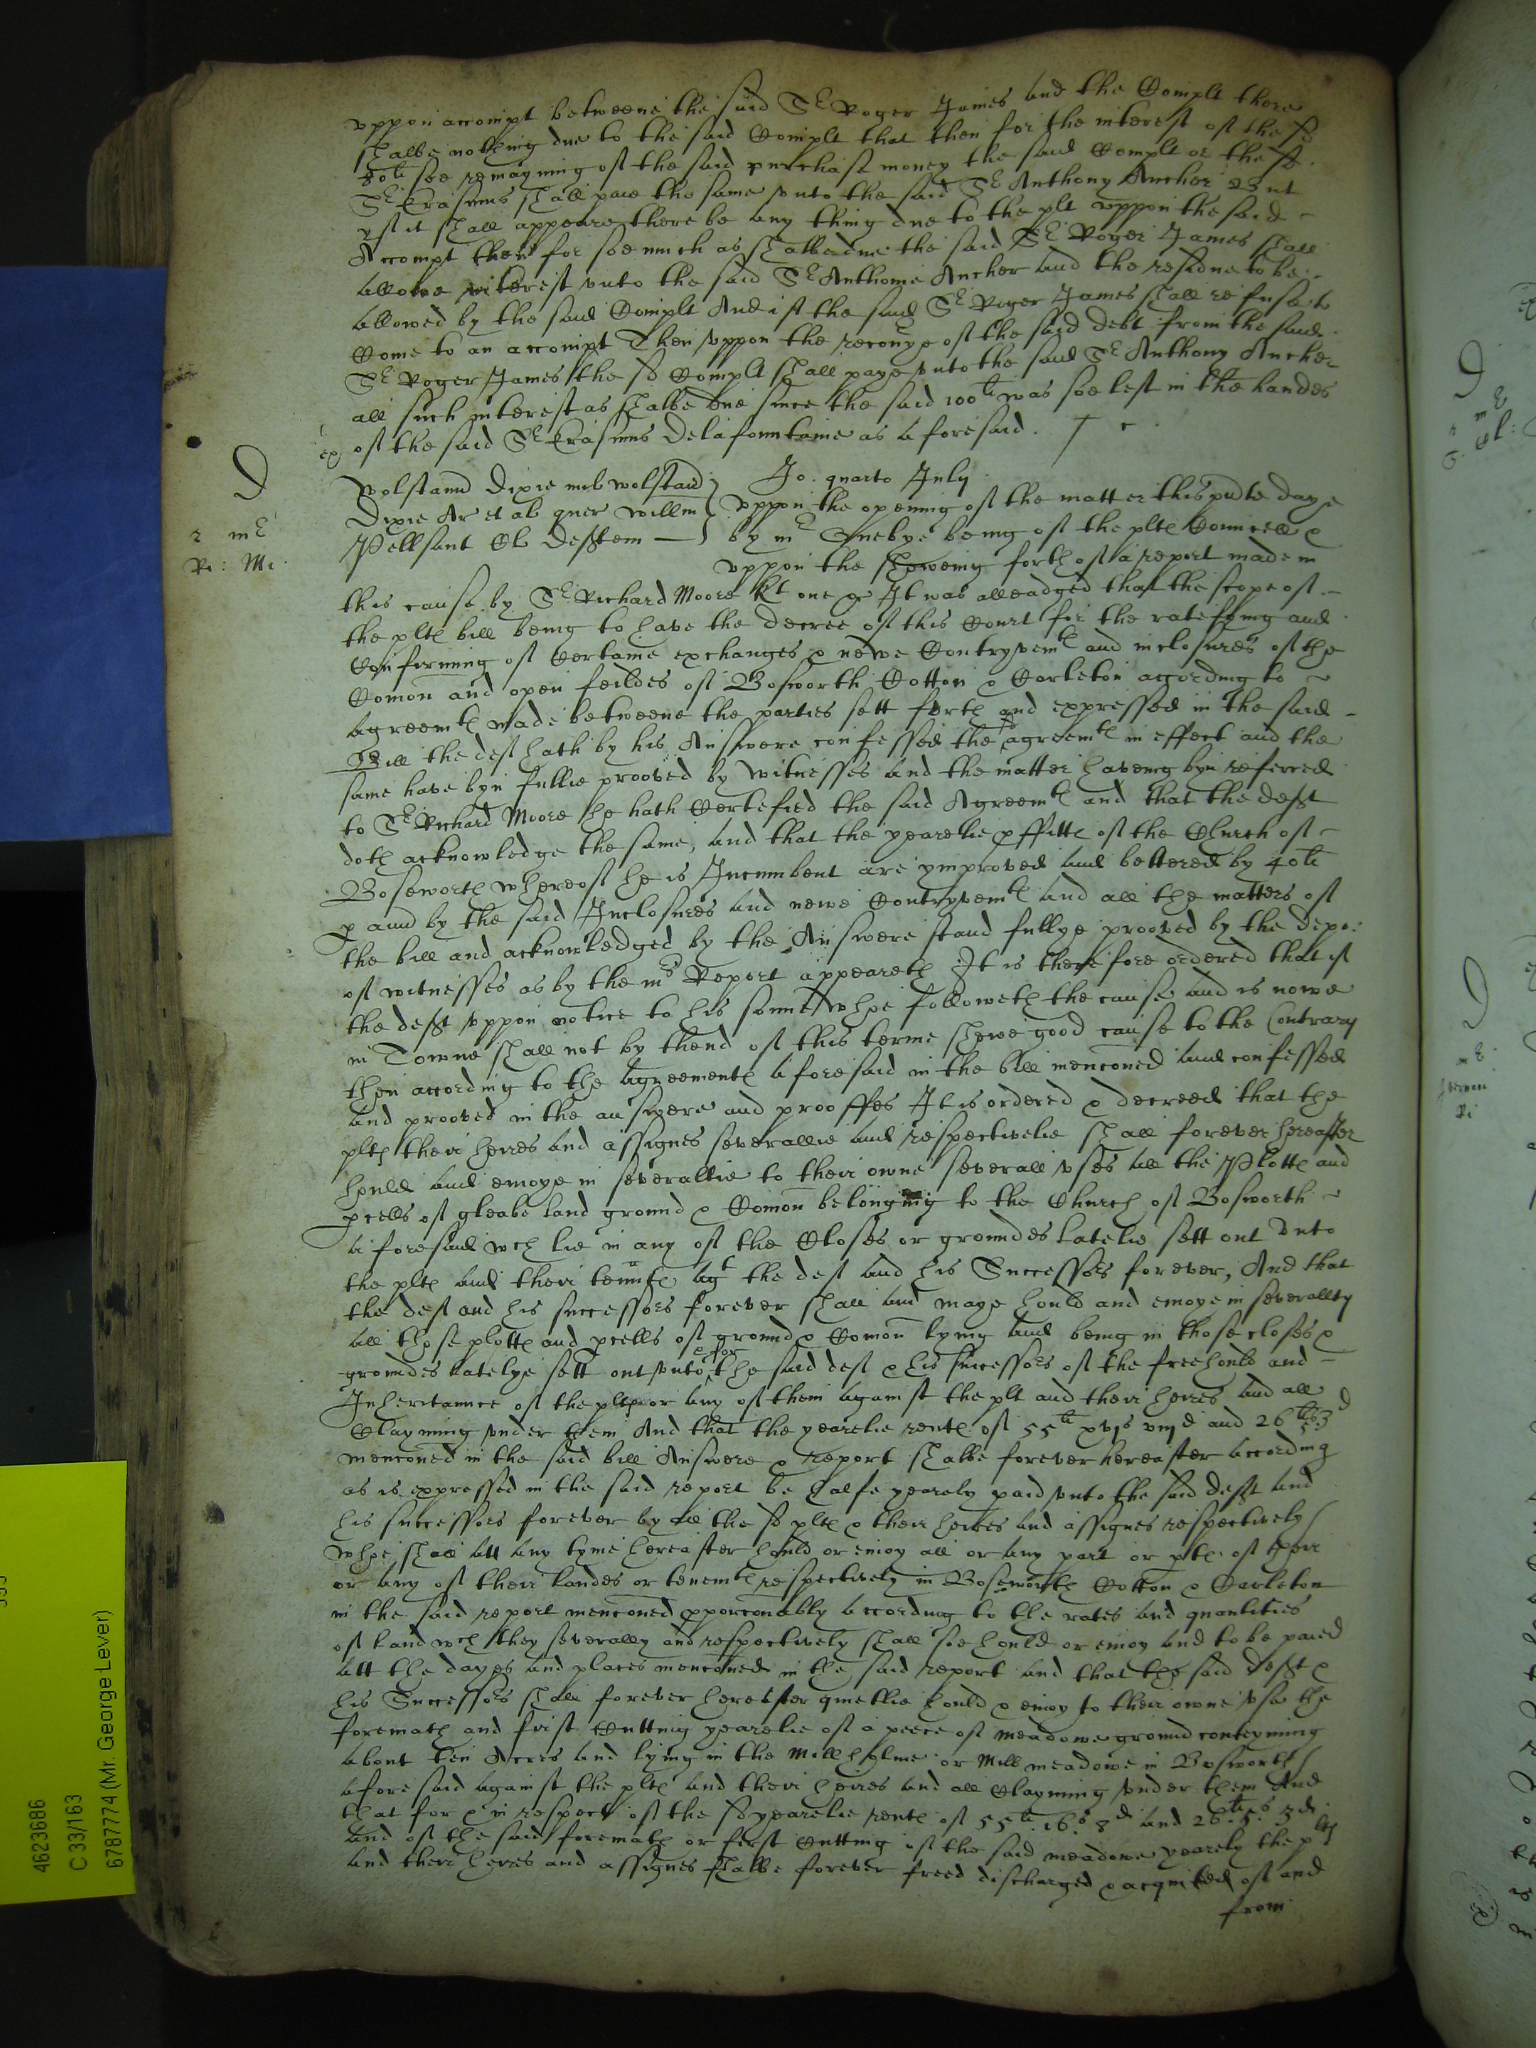 vppon accompt betweene the said Sr Roger James and the Complt there
shalbe nothing due to the said Complt that then for the interest of the sd
80li soe remayning of the said purchase money the said Complt or the sd
Sr Erasmus shall paie the same vnto the said Sr Anthony Aucher But
yf it shall appeare there be any thing due to the plt vppon the said
Accompt then for soe much as shalbe due the said Sr Roger James shall
allowe interest vnto the said Sr Anthonie Aucher and the residue to be
allowed by the said Complt And if the said Sr Roger James shall refuse to
Come to an accompt Then vppon the recouye of the said debt from the said
Sr Roger James the sd Complt shall paye vnto the said Sr Anthony Aucher
all such interest as shalbe due since the said 100li was soe left in the handes
of the said Sr Erasmus Delafountaine as aforesaid
ex
D
2 mr
Ri: Mi
Wolstann Dixie mil wolstan
Dixie Ar et al quer Willm
Pellsant Cl Defftem
Jo. quarto July
vppon the opening of the matter this pnte daye
by mr being of the pltes Councell &
vppon the shewing forth of a report made in
this cause by Sr Richard Moore kt one &c It was alleadged that the scope of
the pltes bill being to have the decree of this Court for the ratefying and
Confirming of Certaine exchanges & newe Contryvemtes and inclosures of the
Comon and open feildes of Bosworth Cotton & Carleton according to
agreemtes made betweene the parties sett forth and expressed in the said
Bill the deft hath by his Answere confessed the sd agreemtes in effect and the
same have byn fullie prooved by witnesses and the matter haveing byn referred
to Sr Richard Moore he hath Certefied the said Agreemtes and that the defft
doth acknowledge the same, and that the yearelie pffittes of the Church of
Boseworth whereof he is Incumbent are ymproved and bettered by 40li
p ann by the said Inclosures and newe Contryvemtes and all the matters of
the bill and acknowledged by the Answere stand fullye prooved by the depo:
of witnesses as by the mrs Report appeareth It is therefore ordered that if
the defft vppon notice to his sonne whoe followeth the cause and is nowe
in Towne shall not by thend of this terme shewe good cause to the Contrary
then according to the agreementes aforesaid in the bill menconed and confessed
and prooved in the answere and prooffes It is ordered & decreed that the
pltes their heires and assignes severallie and respectivelie shall forever hereafter
hould and enioye in severaltie to their owne severall vses all the Plottes and
pcells of gleabe land ground & Comon belonging to the Church of Bosworth
aforesaid wch lie in any of the Closes or groundes latelie sett out vnto
the pltes and their tenntes agt the deft and his Successors forever, And that
the deft and his successors forever shall and maye hould and enioye in severalty
all those plottes and pcells of ground & Comon lying and being in those closes &
groundes latelye sett out vnto & for the said deft & his successors of the freehould and
Inheritaunce of the pltes or any of them against the plt and their heires and all
Clayming vnder them And that the yearelie rentes of 55li xvjs viijd and 26li 5s 3d
menconed in the said bill Answere & report shalbe forever hereafter according
as is expressed in the said report be halfe yearely paid vnto the said defft and
his successors forever by all the sd pltes & their heires and assignes respectively
whoe shall att any tyme hereafter hould or enioy all or any part or ptes of their
or any of their landes or tenemtes respectively in Boseworth Cotton & Carleton
in the said report menconed pporconably according to the rates and quantities
of land wch they severally and respectively shall soe hould or enioy and to be paied
att the dayes and places menconed in the said report and that the said defft &
his Successors shall forever hereafter quietlie hould & enioy to their owne vse the
foremath and first Cutting yearelie of a peece of meadowe ground conteyning
about ten Acres and lying in the Mill holme or Mill meadowe in Bosworth
aforesaid against the pltes and their heires and all Clayming vnder them And
that for & in respect of the sd yearelie rentes of 55li 16s 8d and 26li 5s 3d
and of the said foremath or first Cutting of the said meadowe yearely the pltes
and their heires and assignes shalbe forever freed discharged & acquited of and
from
4623686
C 33/163
6787774 (Mr. George Lever)